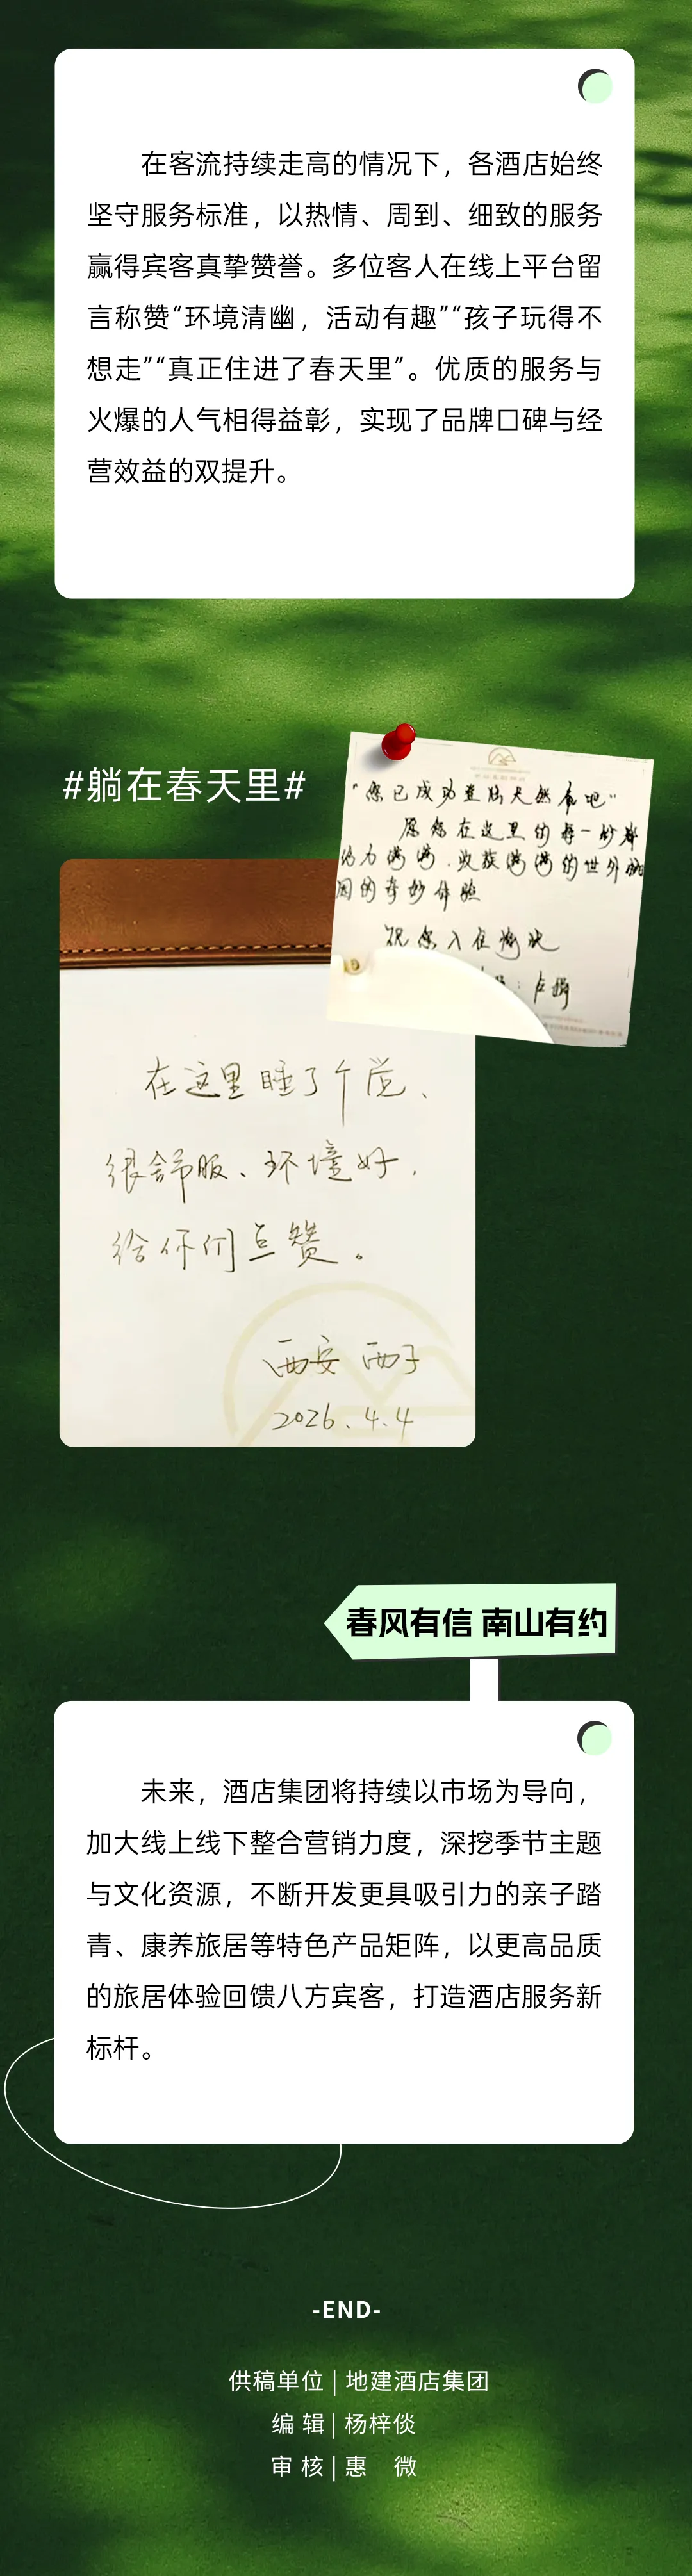 在客流持续走高的情况下，各酒店始终
坚守服务标准，以热情、周到、细致的服务
赢得宾客真挚赞誉。多位客人在线上平台留
言称赞“环境清幽，活动有趣”“孩子玩得不
想走”“真正住进了春天里”。优质的服务与
火爆的人气相得益彰，实现了品牌口碑与经
营效益的双提升。
#躺在春天里#
“您已成功登陆天然氧吧”
愿您在这里的每一秒都
活力满满，收获满满的世外桃
园的奇妙体验
祝您入住愉快
在这里睡了个觉、
很舒服、环境好，
给你们点赞。
西安 西子
2026.4.4
春风有信 南山有约
未来，酒店集团将持续以市场为导向，
加大线上线下整合营销力度，深挖季节主题
与文化资源，不断开发更具吸引力的亲子踏
青、康养旅居等特色产品矩阵，以更高品质
的旅居体验回馈八方宾客，打造酒店服务新
标杆。
-END-
供稿单位 | 地建酒店集团
编 辑 | 杨梓倓
审 核 | 惠 微